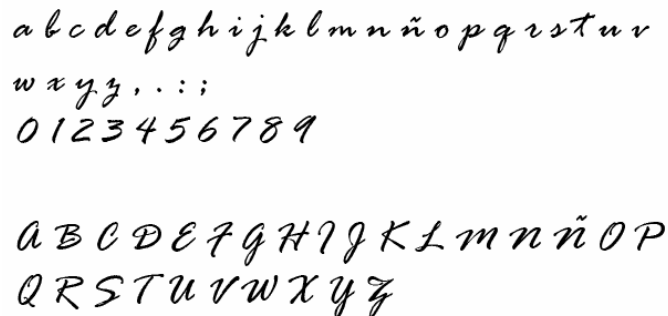 a b c d e f g h i j k l m n ñ o p q r s t u v
w x y z , . : ;
0 1 2 3 4 5 6 7 8 9
A B C D E F G H I J K L M N Ñ O P
Q R S T U V W X Y Z